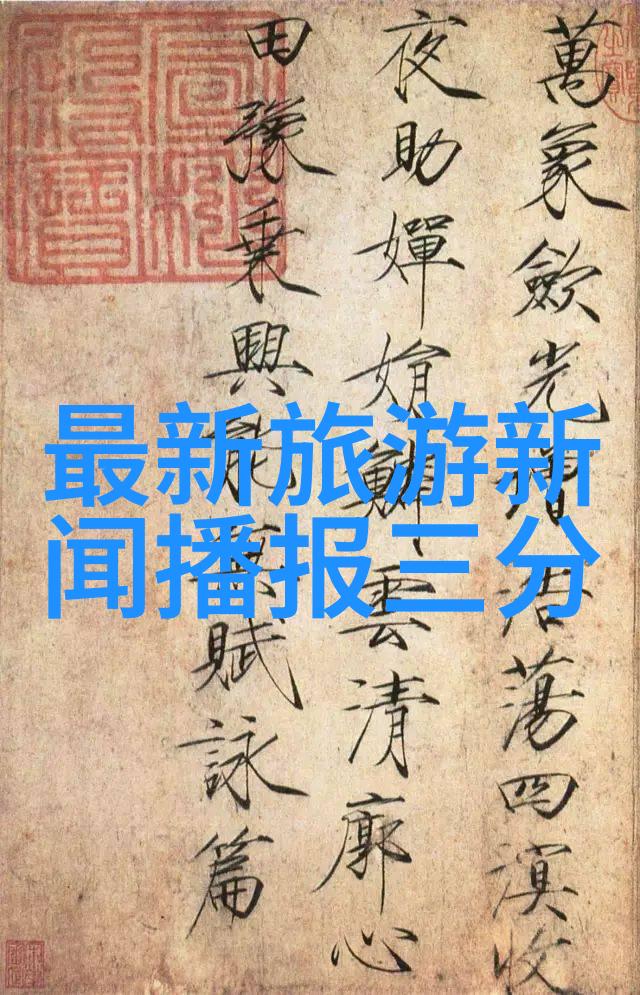 萬象歛光增浩蕩四溟收
夜助嬋娟鱗雲清廓心
田豫乘興能無賦詠篇
最新旅游新
闻播报三分